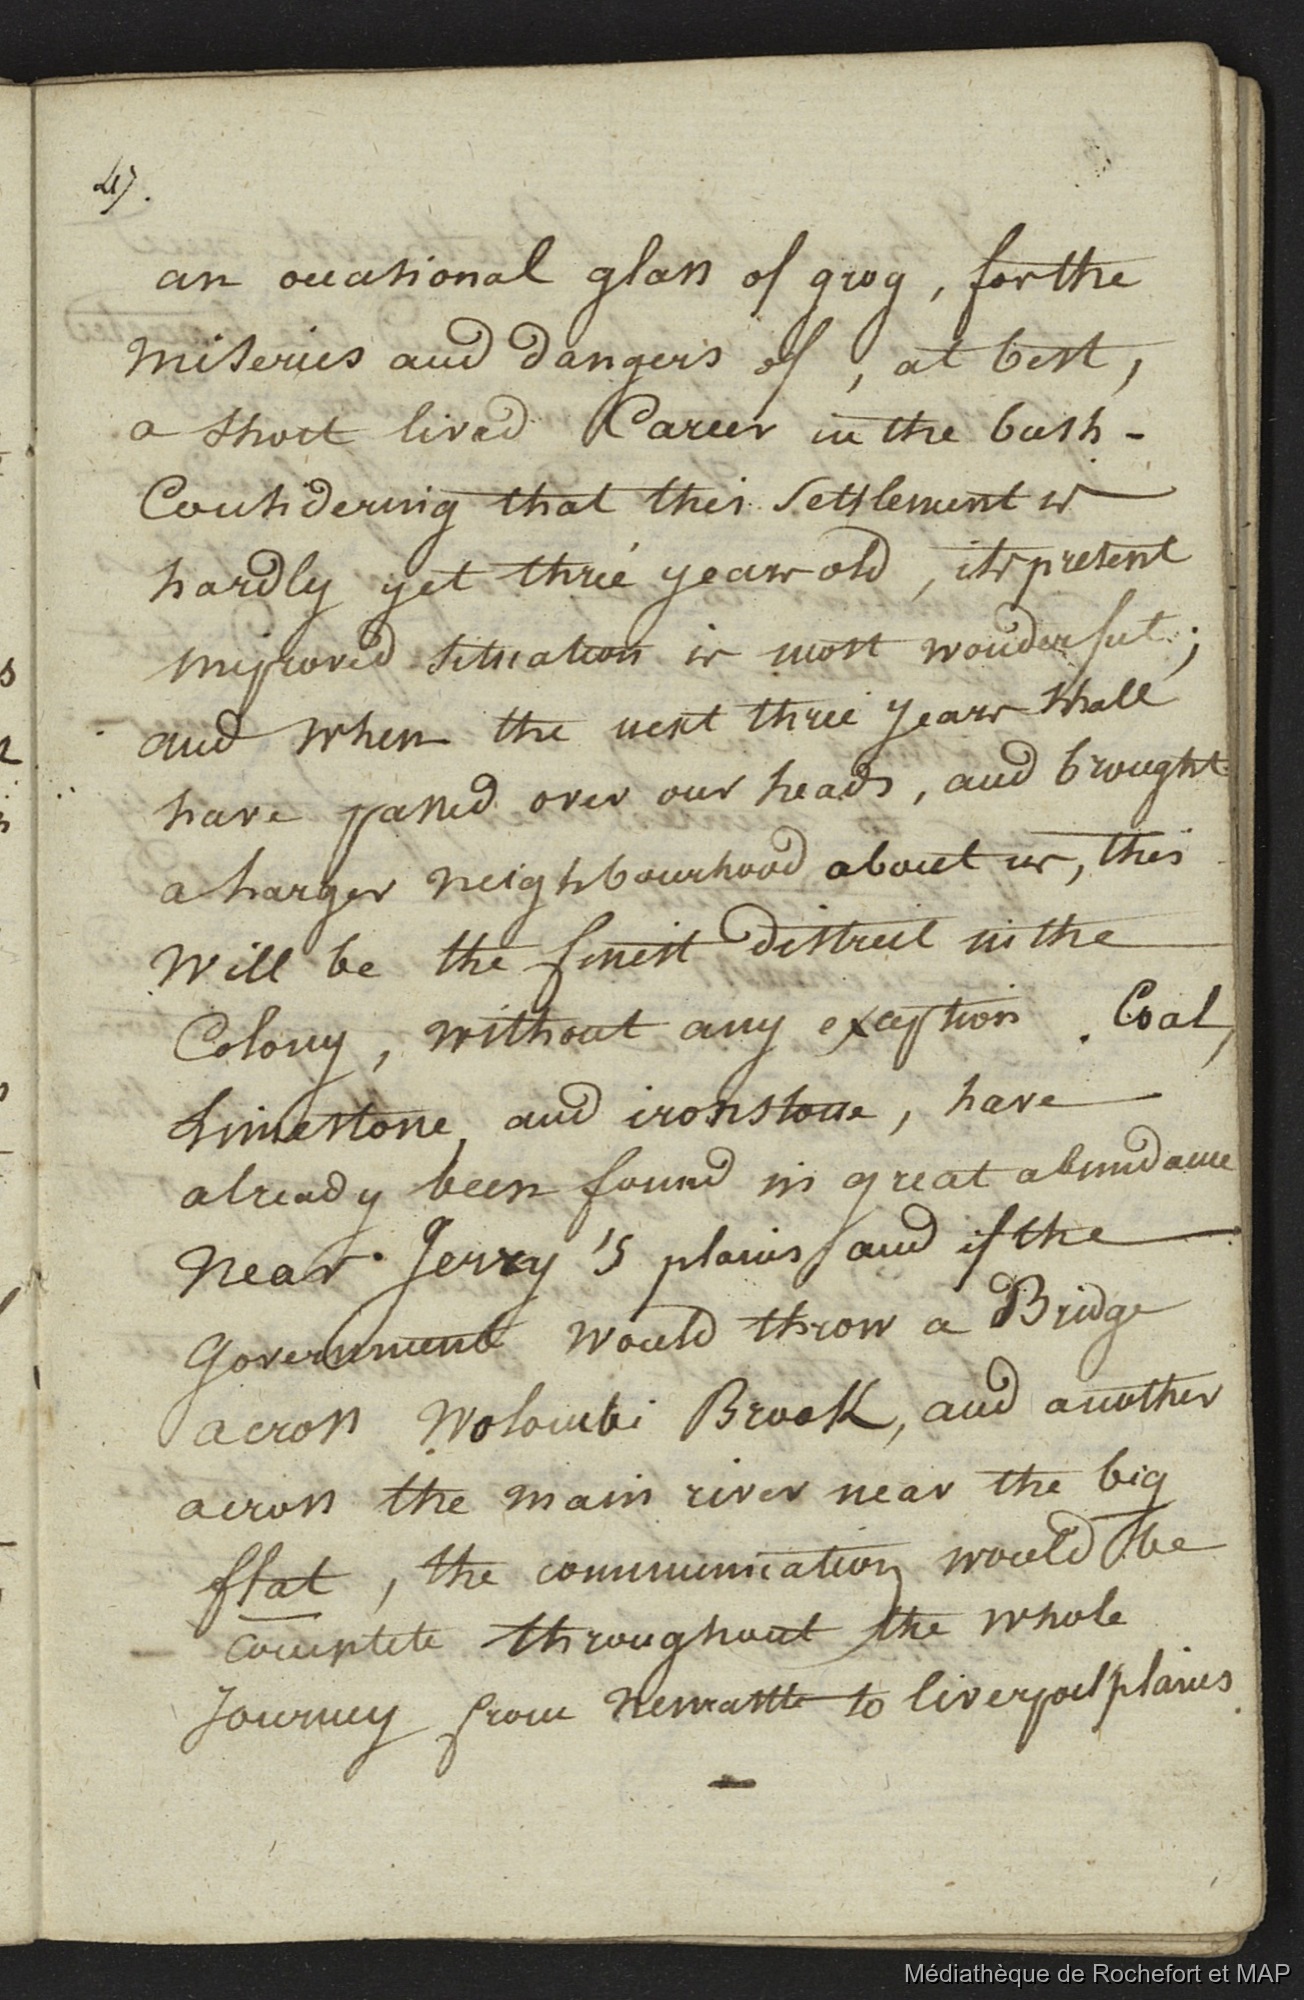 4).
an occasional glass of grog, for the
miseries and dangers of, at best,
a short lived Career in the bush -
Considering that this Settlement is
hardly yet three years old, its present
improved situation is most wonderful;
and when the next three years shall
have passed over our heads, and brought
a larger neighbourhood about us, this
will be the finest district in the
Colony, without any exception. Coal,
Limestone, and ironstone, have
already been found in great abundance
near Jerry's plains, and if the
Government would throw a Bridge
across Wolombi Brook, and another
across the main river near the big
flat, the communication would be
complete throughout the whole
Journey from Newcastle to liverpool plains.
Médiathèque de Rochefort et MAP